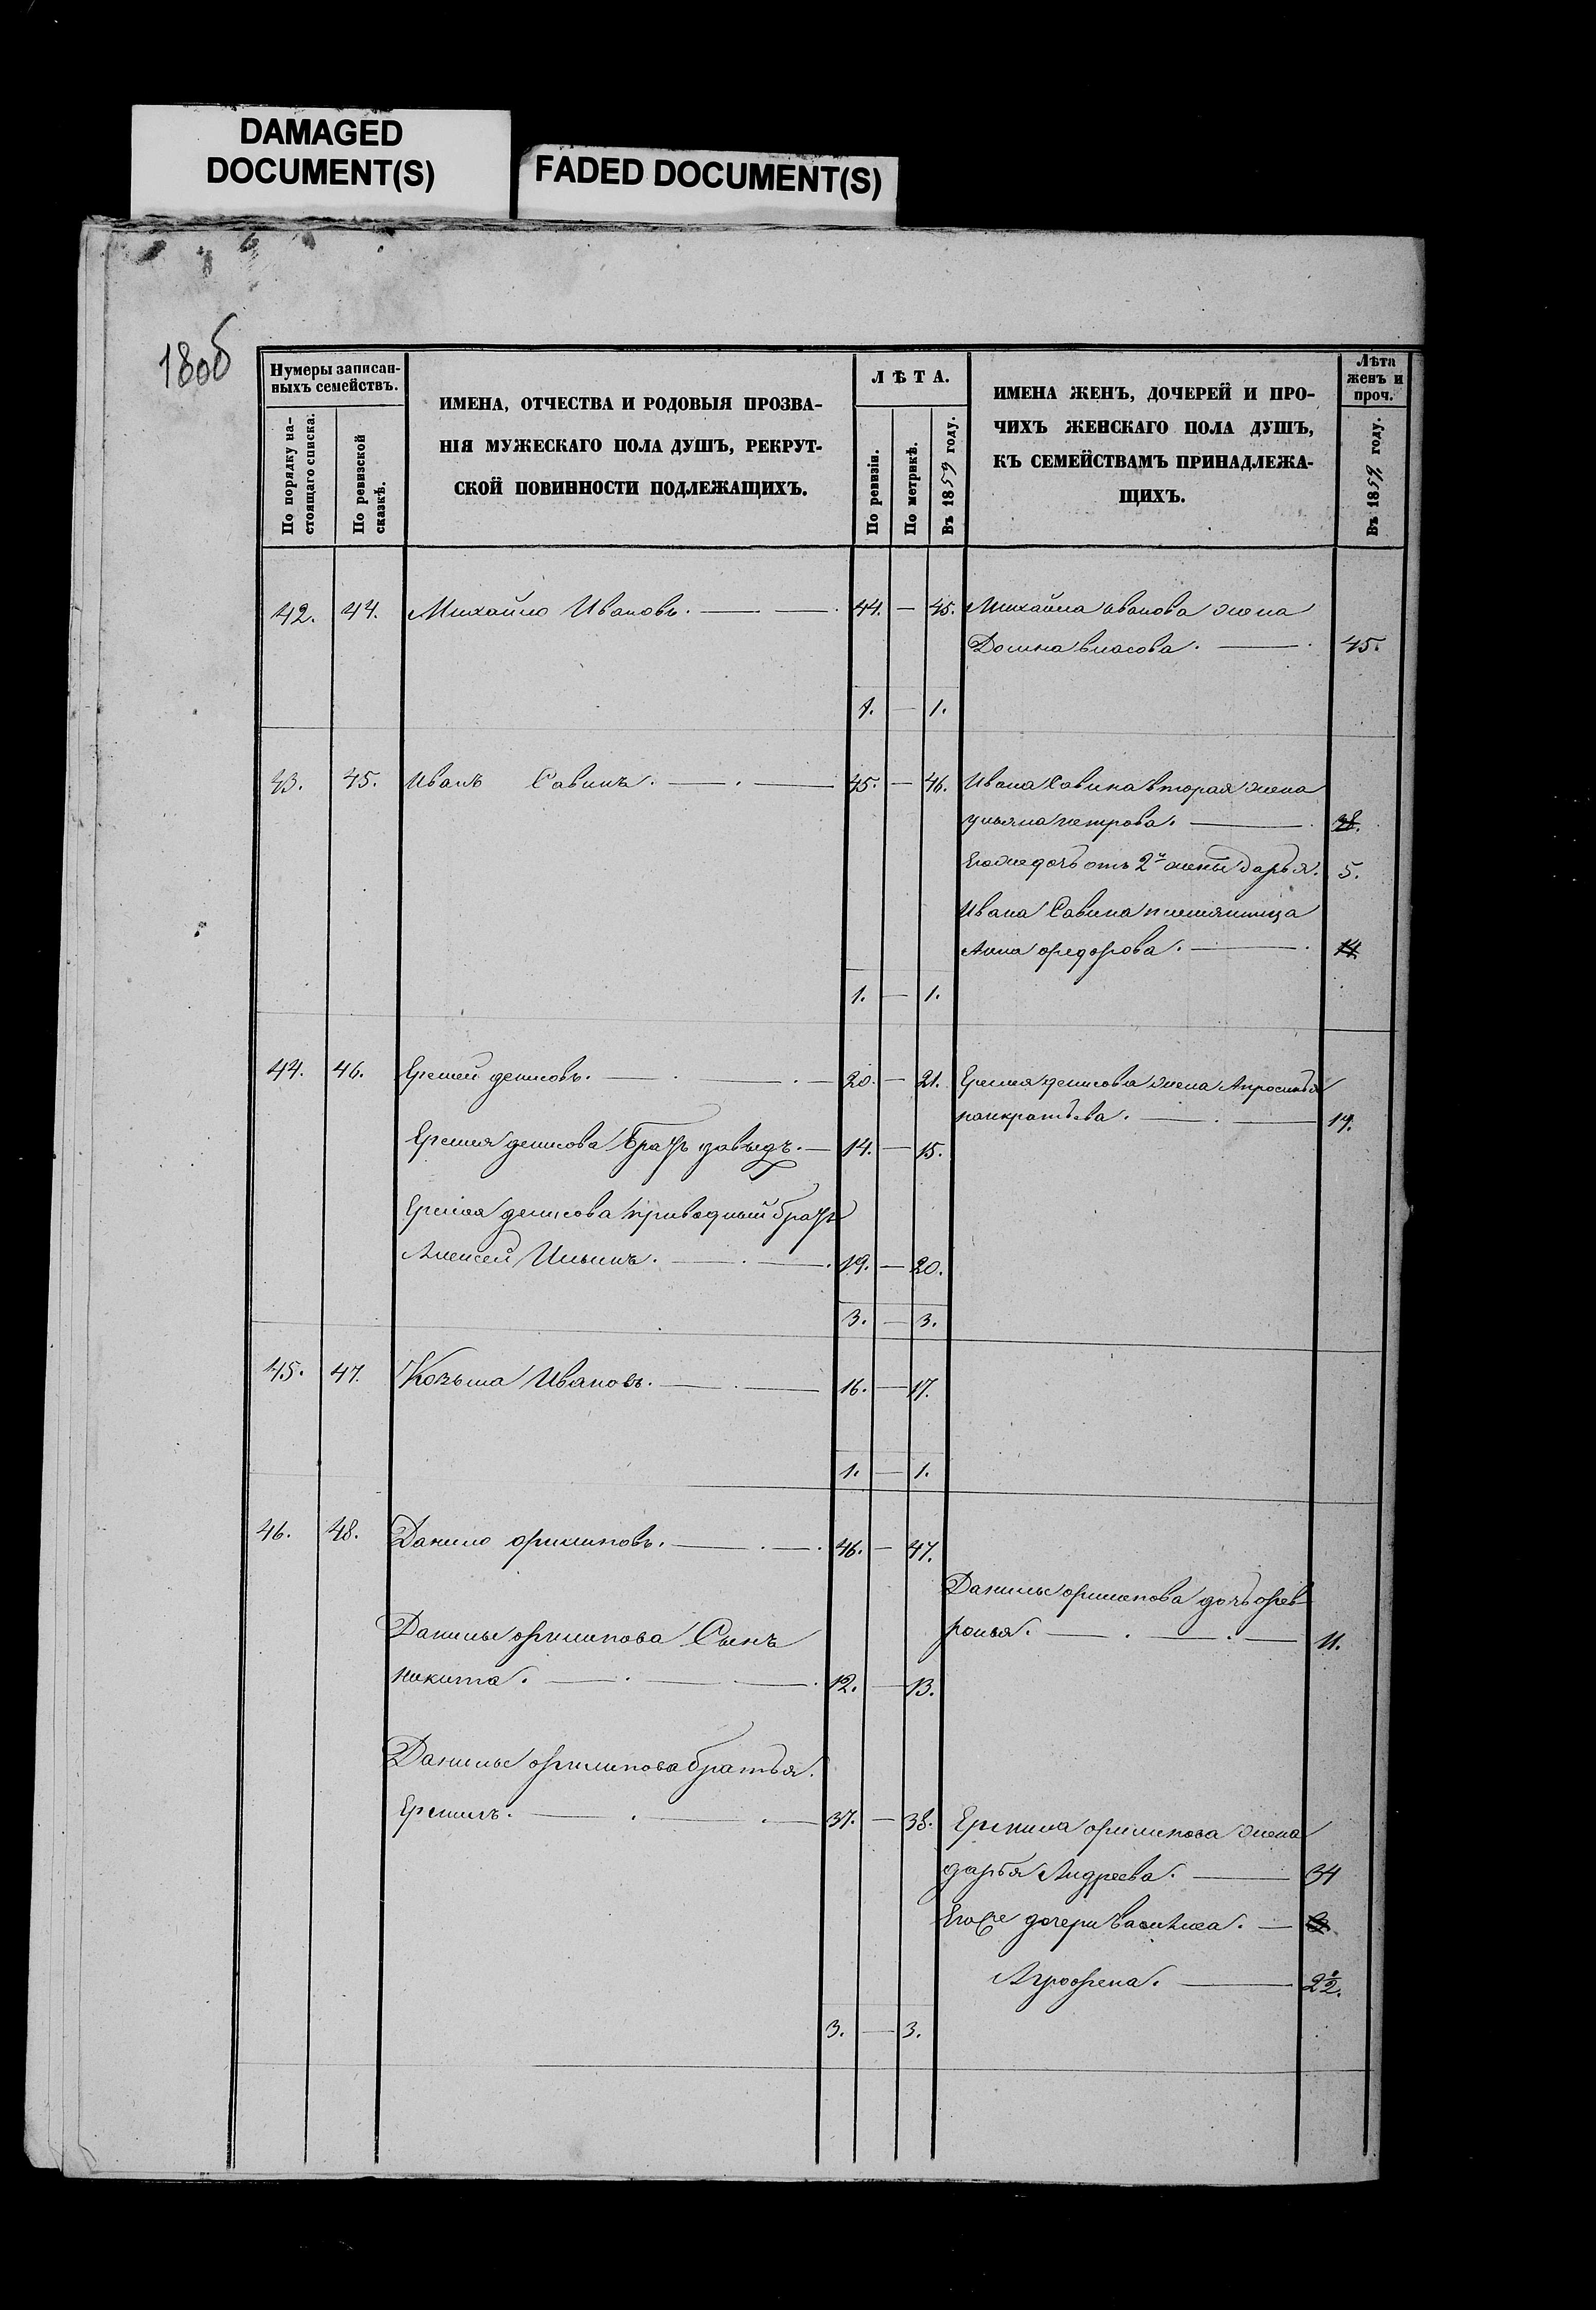 DAMAGED
DOCUMENT(S)
FADED DOCUMENT(S)
180об
Нумеры записан-
ныхъ семействъ.
По порядку на-
стоящаго списка.
По ревизской
сказкѣ.
ИМЕНА, ОТЧЕСТВА И РОДОВЫЯ ПРОЗВА-
НІЯ МУЖЕСКАГО ПОЛА ДУШЪ, РЕКРУТ-
СКОЙ ПОВИННОСТИ ПОДЛЕЖАЩИХЪ.
ЛѢТА.
По ревизіи.
По метрикѣ.
Въ 1859 году.
ИМЕНА ЖЕНЪ, ДОЧЕРЕЙ И ПРО-
ЧИХЪ ЖЕНСКАГО ПОЛА ДУШЪ,
КЪ СЕМЕЙСТВАМЪ ПРИНАДЛЕЖА-
ЩИХЪ.
Лѣта
женъ и
проч.
Въ 1859 году.
42. 44. Михайло Ивановъ. 44. — 45. Михайла иванова жена
Домна власова. 45.
1. — 1.
43. 45. Иванъ Савинъ. 45. — 46. Ивана Савина вторая жена
ульяна петрова. 38.
Его же дочь отъ 2й жены дарья. 5.
Ивана Савина племянница
Анна федорова. 14.
1. — 1.
44. 46. Ермей денисовъ. 20. — 21. Ермея денисова жена Апросинья
панкратьева. 19.
Ермея денисова братъ давыдъ. 14. — 15.
Ермея денисова приводный братъ
Алексей Ильинъ. 19. — 20.
3. — 3.
45. 47. Козьма Ивановъ. 16. — 17.
1. — 1.
46. 48. Данило филиповъ. 46. — 47.
Данилы филипова дочь фев
ронья. 11.
Данилы филипова Сынъ
никита. 12. — 13.
Данилы филипова братья.
Ермилъ. 37. — 38. Ермила филипова жена
дарья Андреева. 34
Его же дочери василиса.
Агрофена. 2½.
3. — 3.